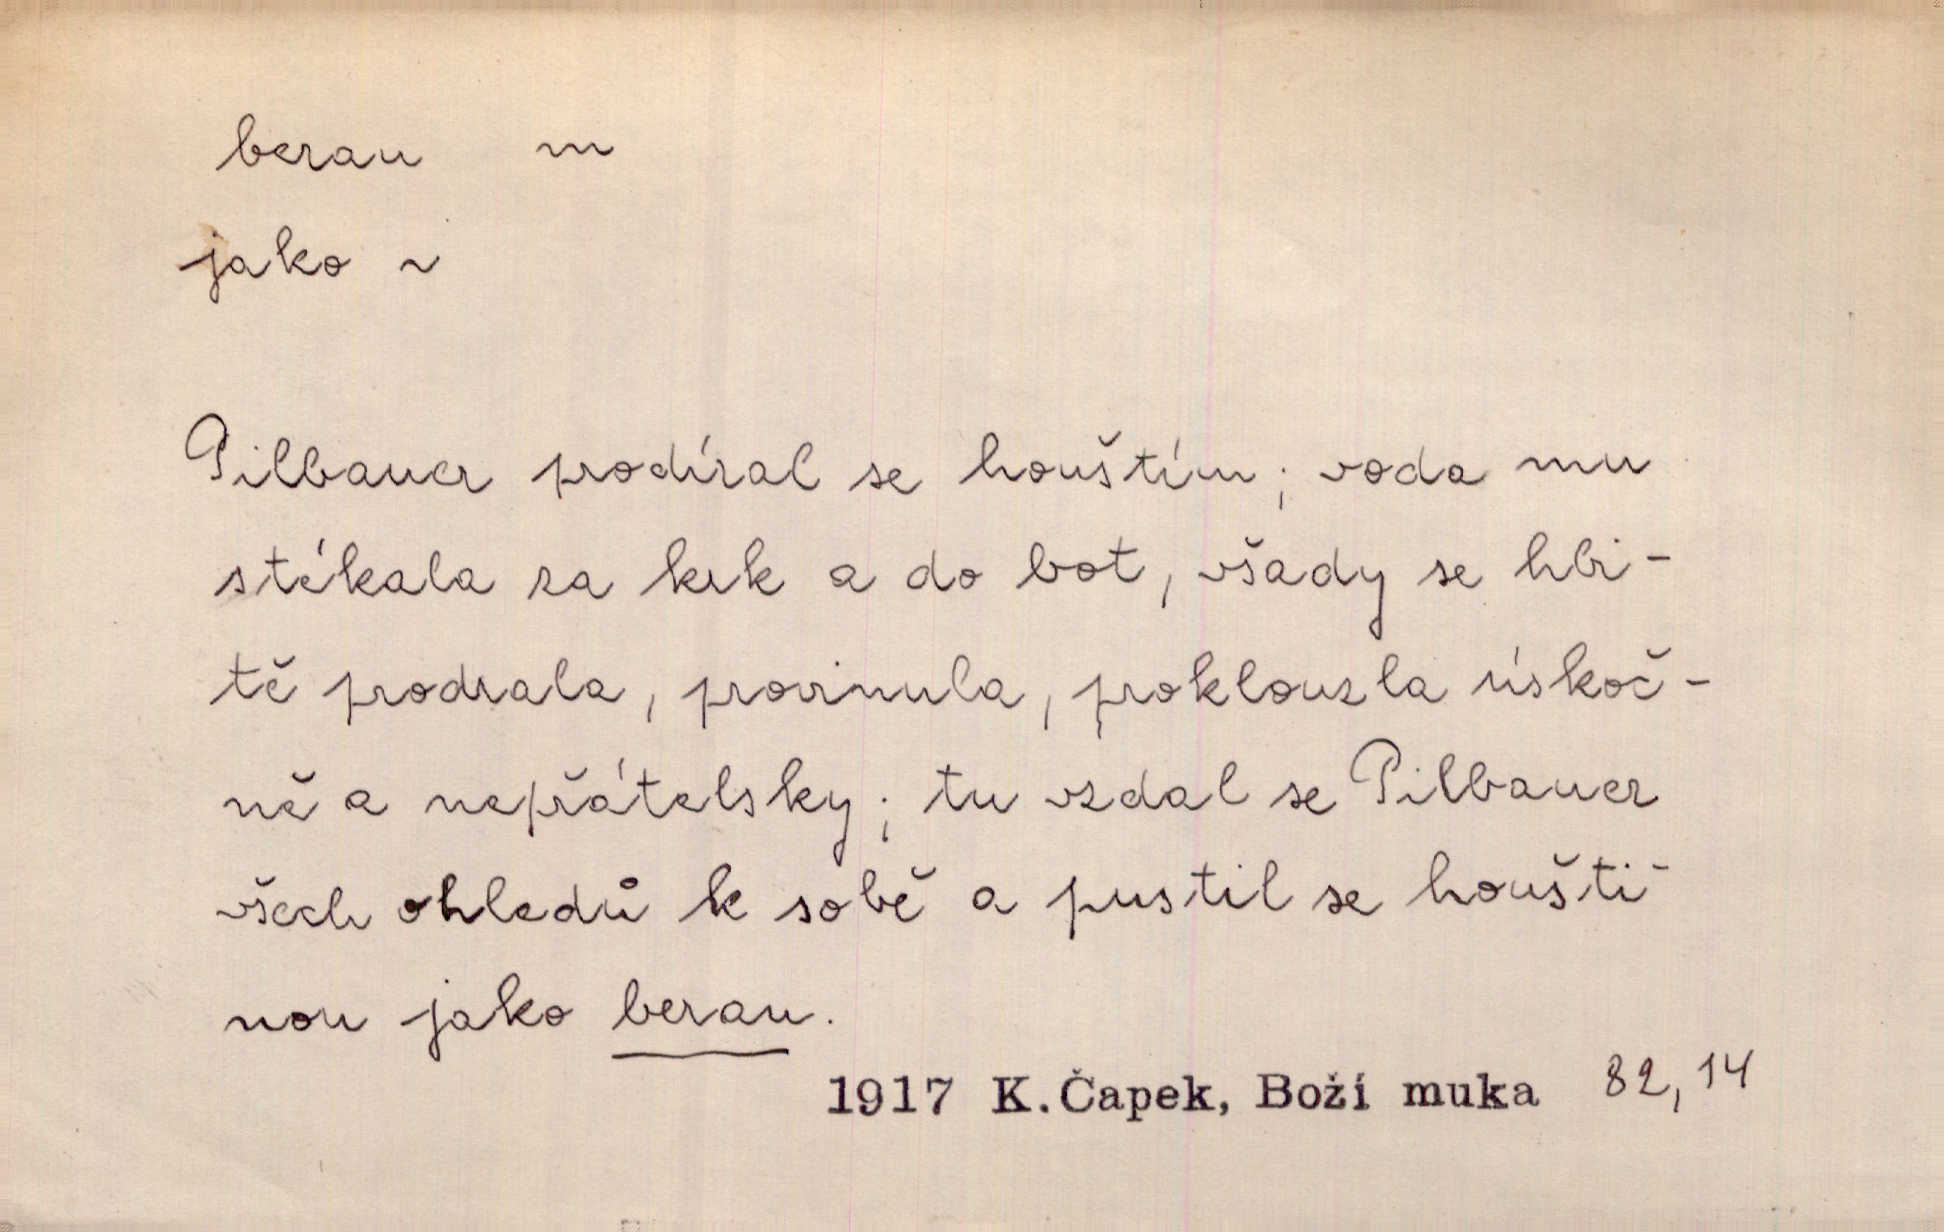 beran m
jako ~
Pilbauer prodíral se houštím; voda mu
stékala za krk a do bot, všady se hbi-
tě prodrala, provinula, proklouzla úskoč-
ně a nepřátelsky; tu vzdal se Pilbauer
všech ohledů k sobě a pustil se houšti-
nou jako beran.
1917 K.Čapek, Boží muka 82,14